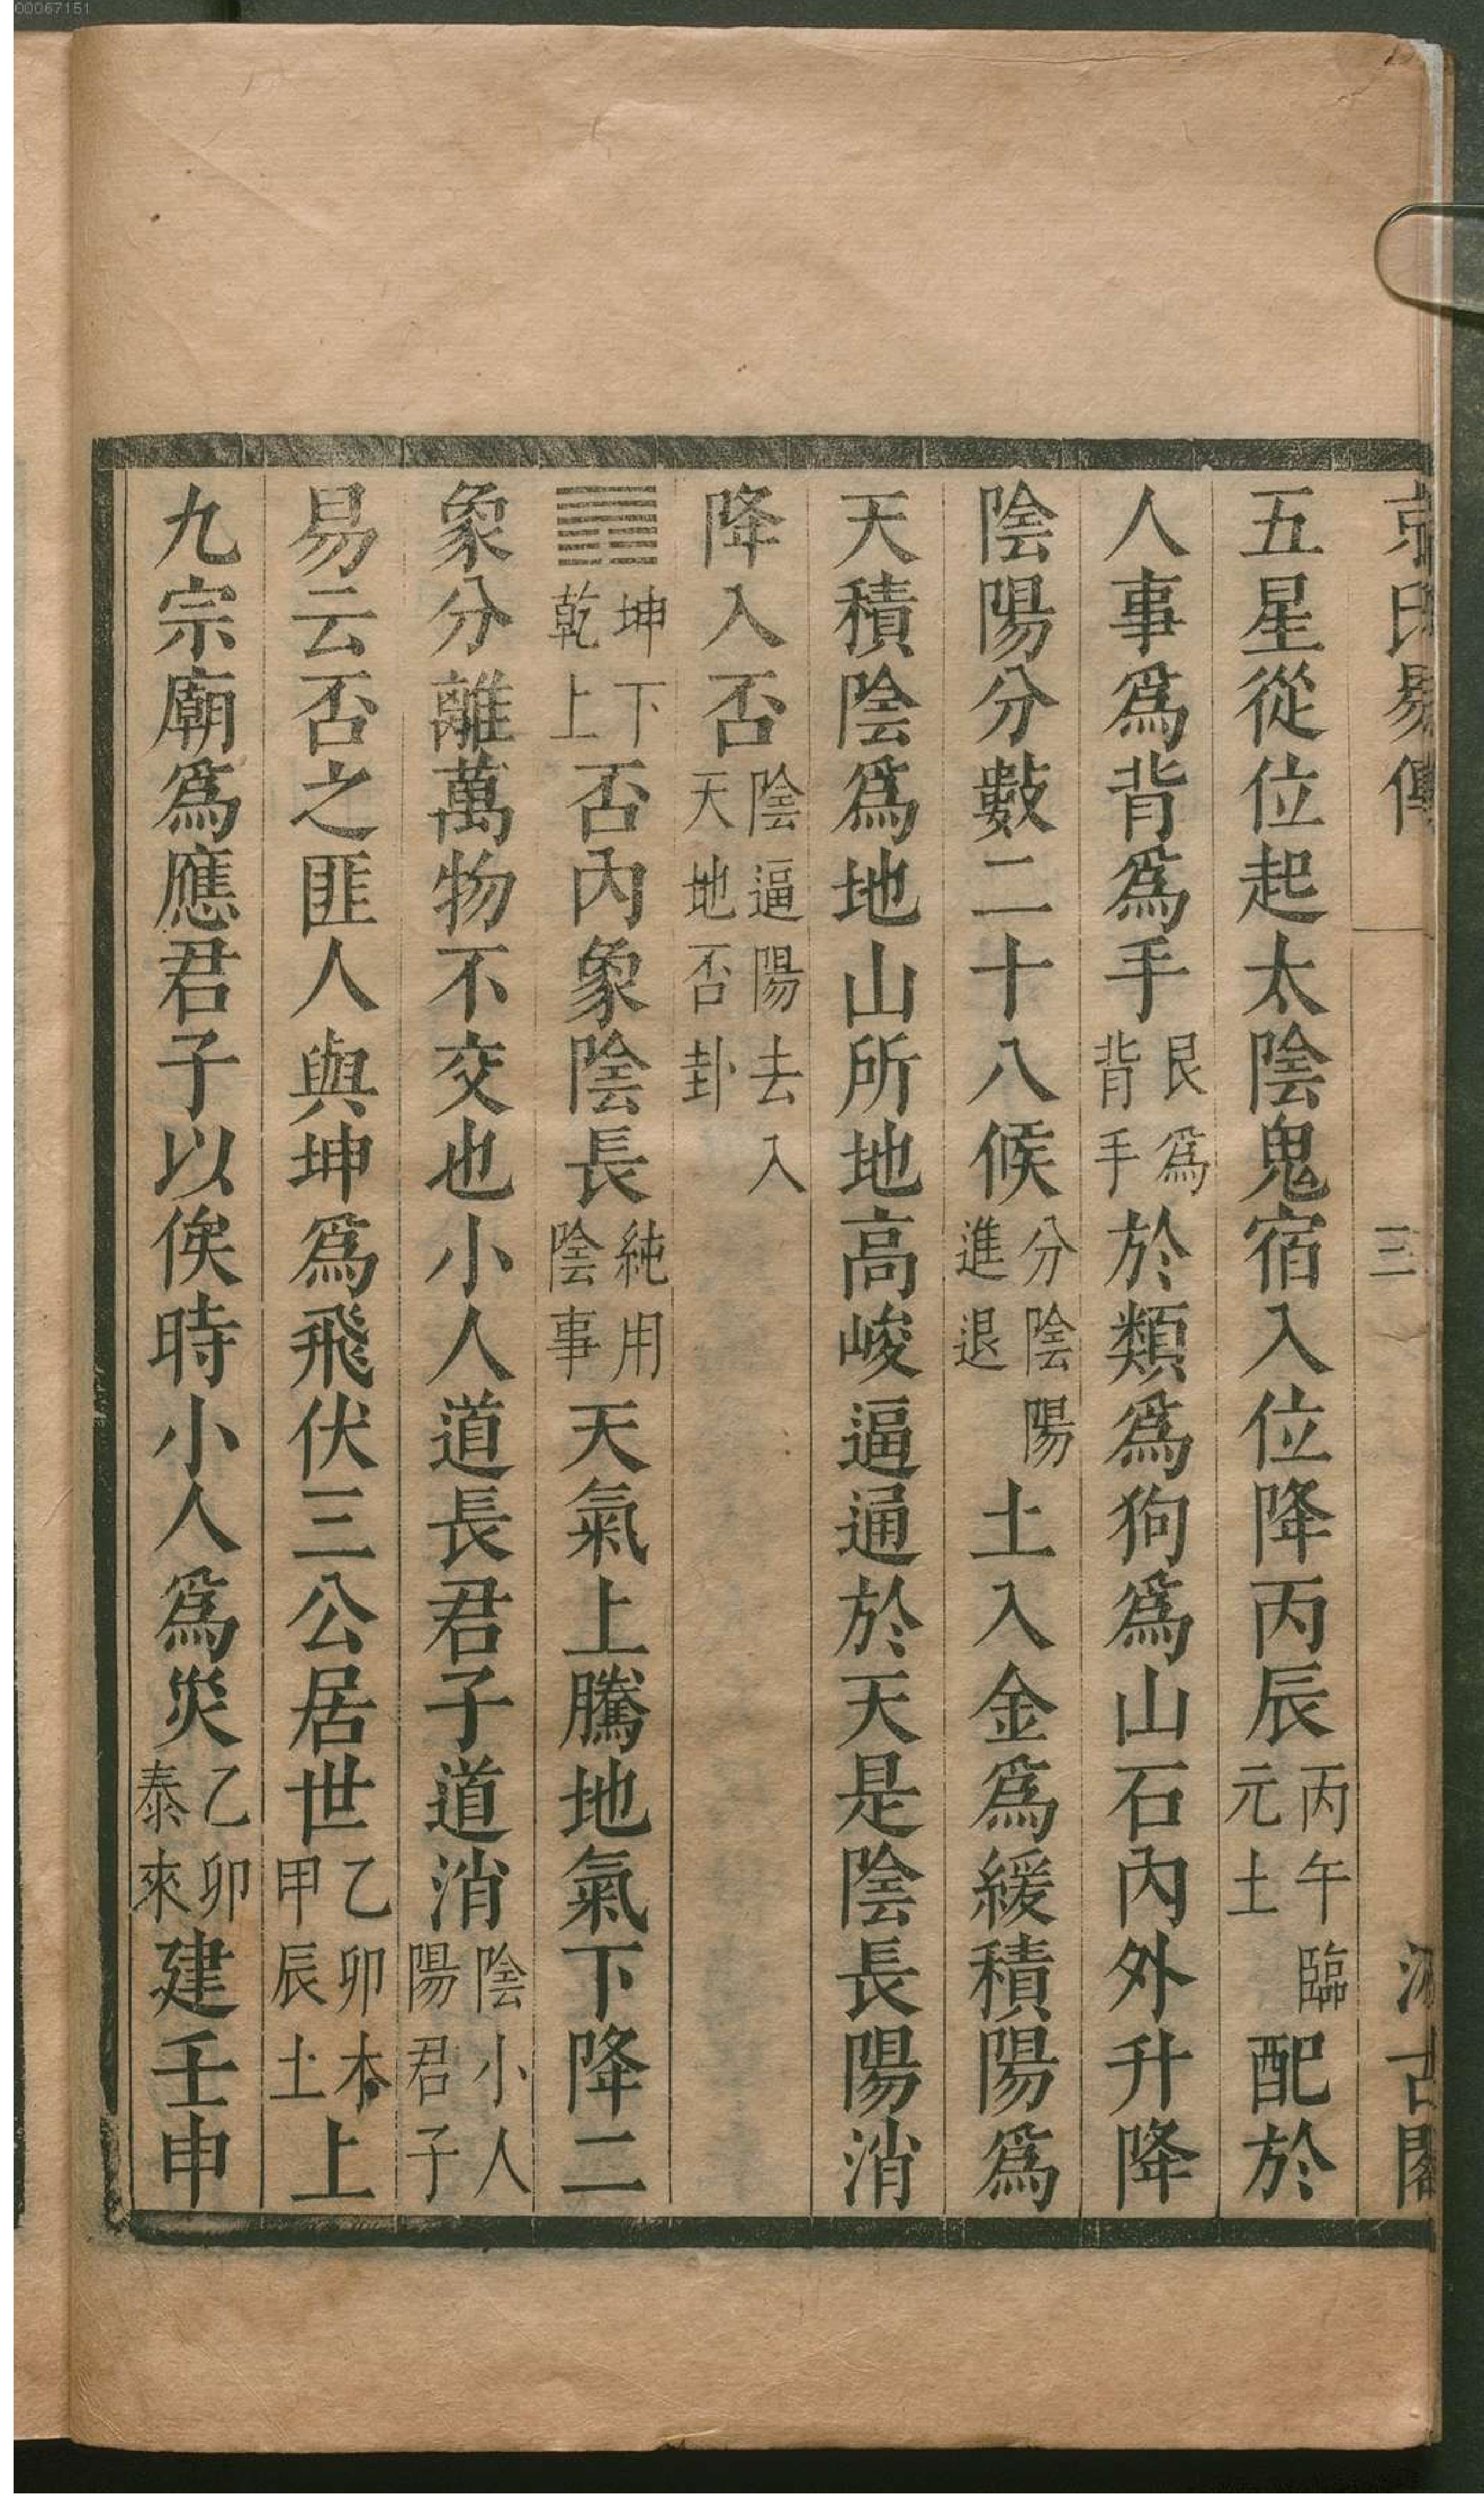 00067151
京氏易傳 三 汲古閣
五星從位起太陰鬼宿入位降丙辰丙午臨元土配於
人事爲背爲手艮爲背手於類爲狗爲山石內外升降
陰陽分數二十八候分陰陽進退土入金爲緩積陽爲
天積陰爲地山所地高峻逼通於天是陰長陽消
降入否陰逼陽去入天地否卦
䷋坤下乾上否內象陰長純用陰事天氣上騰地氣下降二
象分離萬物不交也小人道長君子道消陰小人陽君子
易云否之匪人與坤爲飛伏三公居世乙卯木甲辰土上
九宗廟爲應君子以俟時小人爲災乙卯泰來建壬申